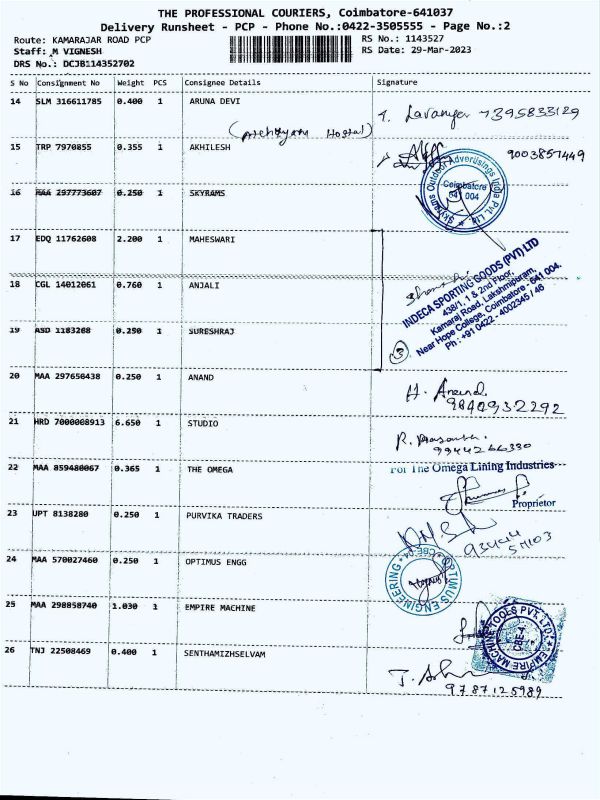 THE PROFESSIONAL COURIERS, Coimbatore-641037
Delivery Runsheet - PCP - Phone No.:0422-3505555 - Page No.:2
Route: KAMARAJAR ROAD PCP RS No.: 1143527
Staff: M VIGNESH RS Date: 29-Mar-2023
DRS No.: DCJB114352702
S No Consignment No Weight PCS Consignee Details Signature
14 SLM 316611785 0.400 1 ARUNA DEVI
Hostel)
15 TRP 7970855 0.355 1 AKHILESH 9003857449
16 MAA 297773607 0.250 1 SKYRAMS
Skyrams Outdoor Advertisings India Pvt. Ltd.
Coimbatore
641 004
17 EDQ 11762608 2.200 1 MAHESWARI
18 CGL 14012061 0.760 1 ANJALI
INDECA SPORTING GOODS (PVT) LTD
438/1, 1 & 2nd Floor,
Kamaraj Road, Lakshmipuram,
Near Hope College, Coimbatore - 641 004.
Ph : +91 0422 - 4002345 / 46
3
19 ASD 1183288 0.250 1 SURESHRAJ
20 MAA 297650438 0.250 1 ANAND
H. Anand
9840932292
21 HRD 7000008913 6.650 1 STUDIO
9944266330
22 MAA 859480067 0.365 1 THE OMEGA
For The Omega Lining Industries
Proprietor
23 UPT 8138280 0.250 1 PURVIKA TRADERS
24 MAA 570027460 0.250 1 OPTIMUS ENGG
OPTIMUS ENGINEERING CBE-4
25 MAA 298858740 1.030 1 EMPIRE MACHINE
EMPIRE MACHINE TOOLS PVT. LTD.
CBE-4
26 TNJ 22508469 0.400 1 SENTHAMIZHSELVAM
9787125989